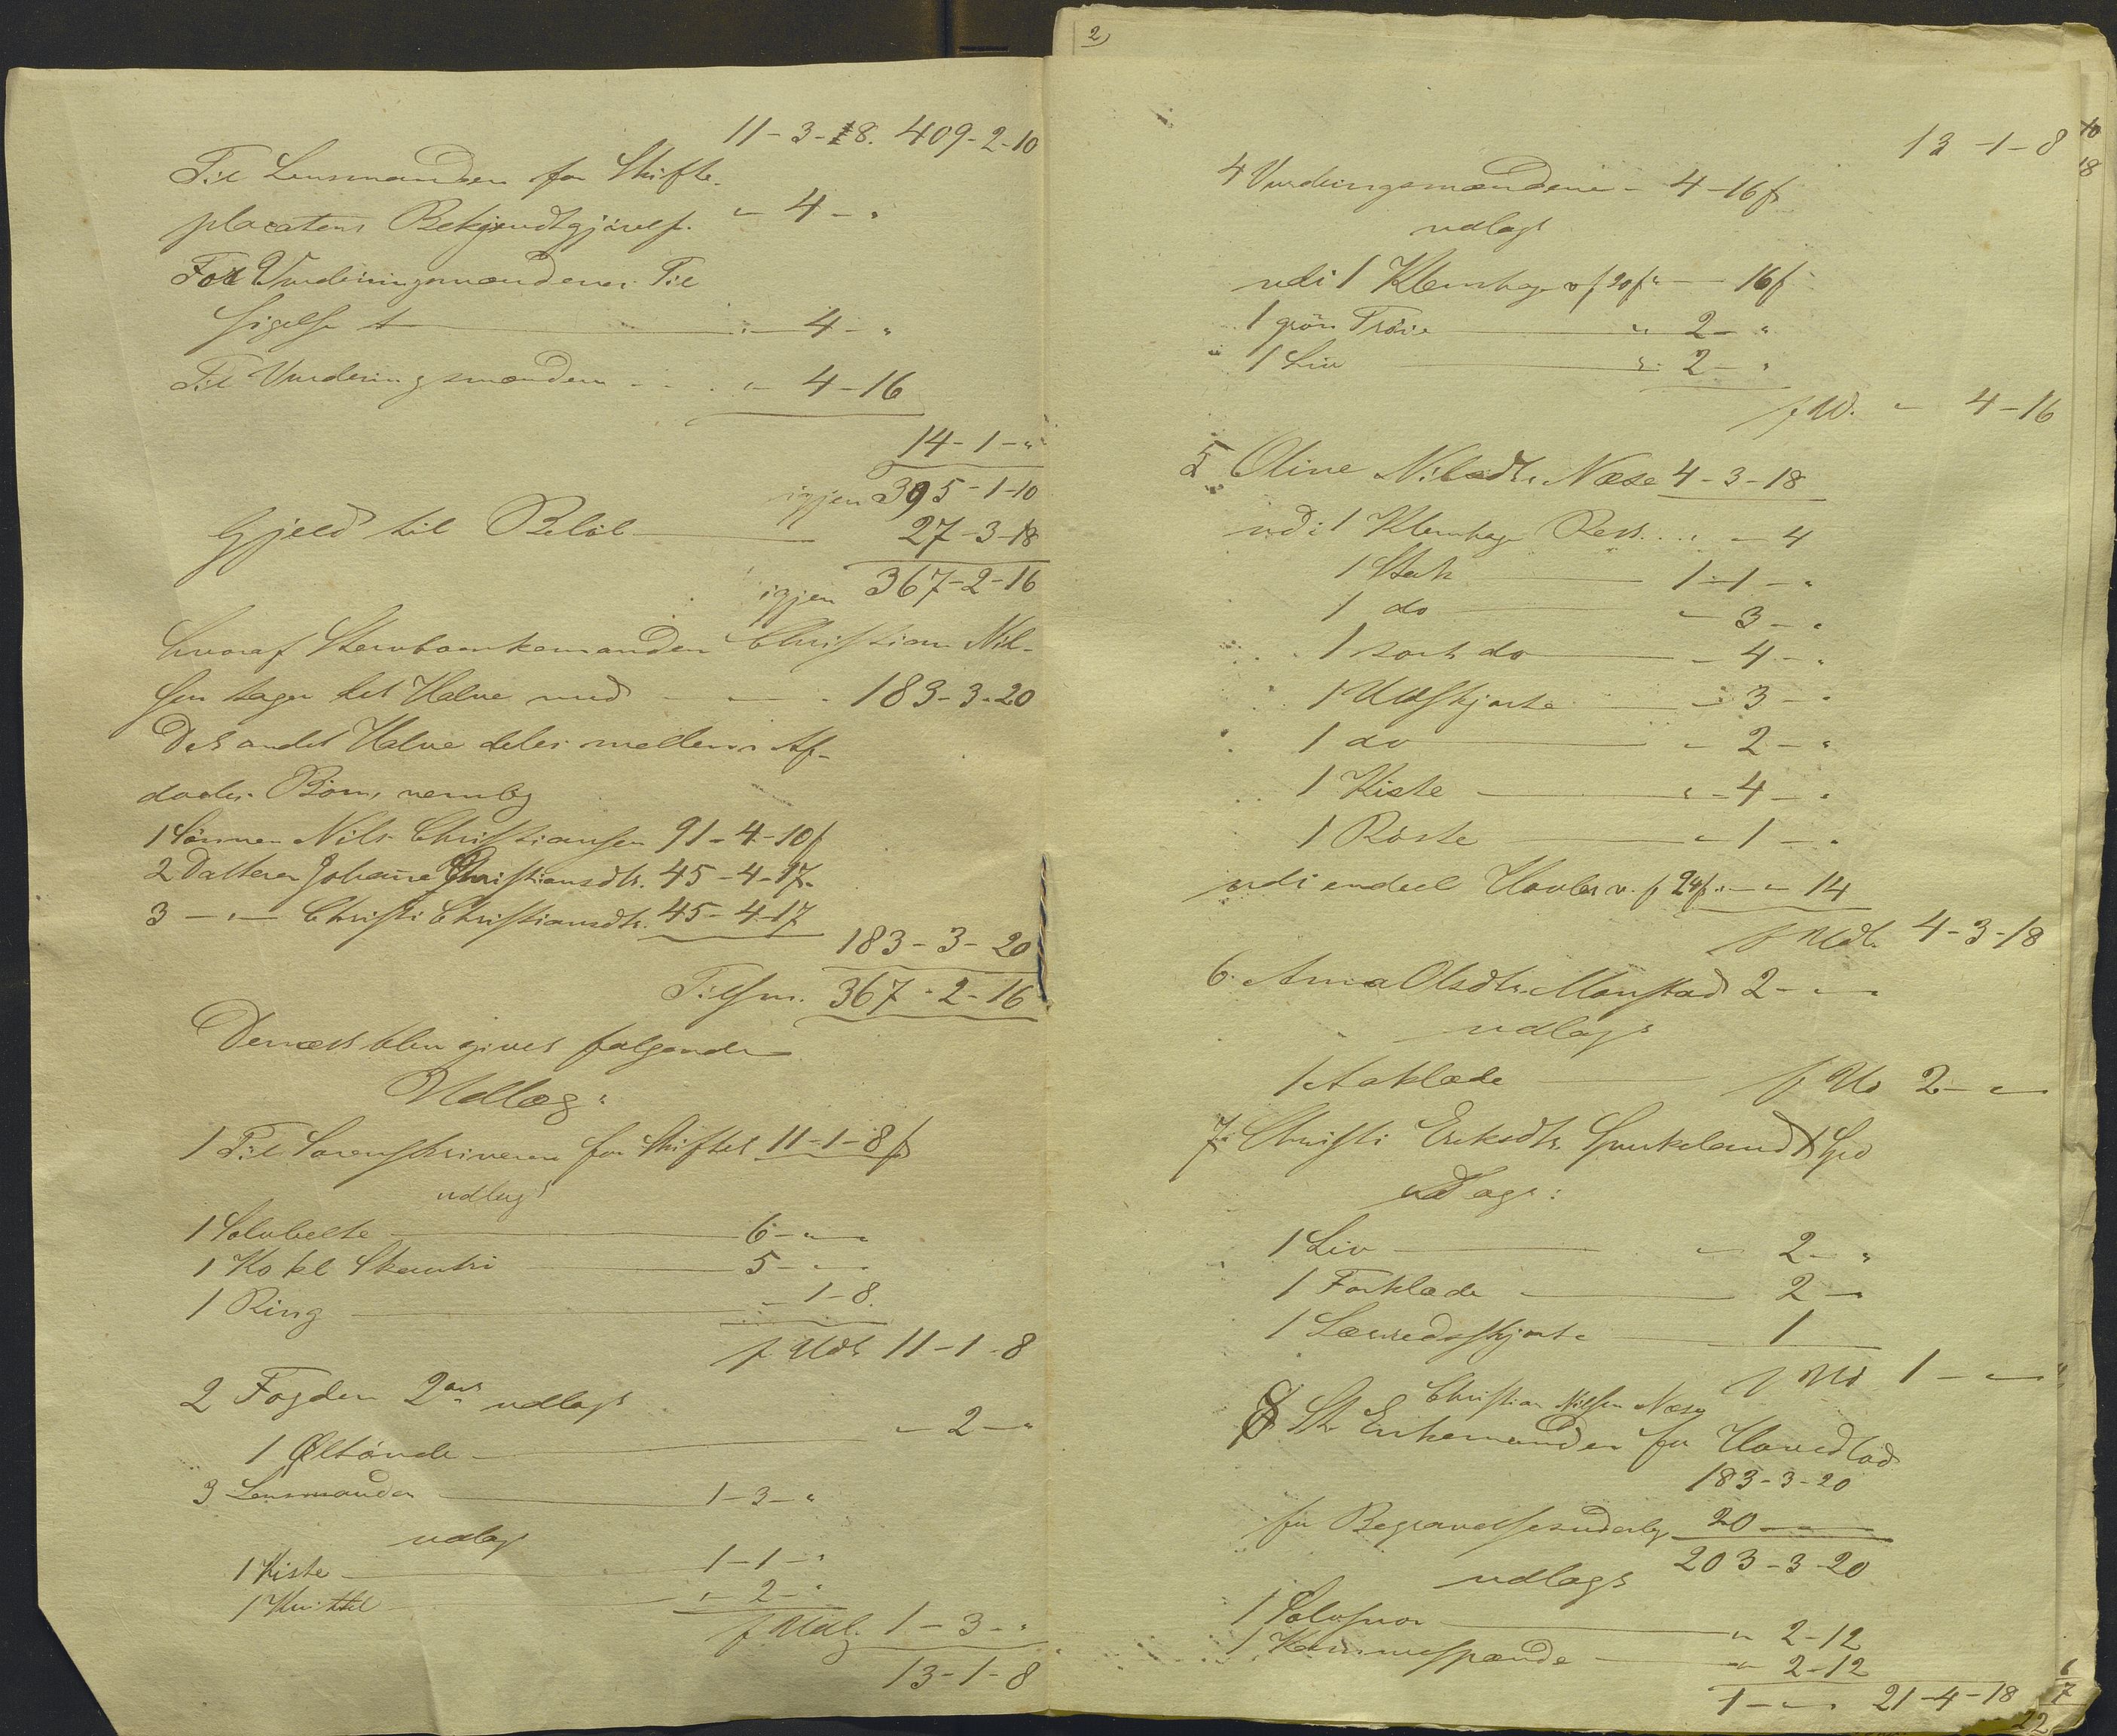 11-3-18. 409-2-10
Til Lensmanden for Skifte-
placatens Bekjendtgjörelse. " 4 - "
For Vurderingsmændenes Til
sigelse t " - 4 - "
Til Vurderingsmændene " - 4-16
14-1-"
igjen 395-1-10
Gjeld til Belöb 27-3-18
igjen 367-2-16
hvoraf Stervboenkemanden Christian Nil-
sen tager det Halve med 183-3-20
Det andet Halve deles mellem Af-
dödes Börn, nemlig
1 Sönnen Nils Christiansen 91-4-10 s
2 Datteren Johanne Christiansdtr. 45-4-17.
3 - " - Christi Christiansdtr. 45-4-17
183-3-20
Tilsm. 367-2-16
Dernæst blev givet følgende
Udlæg:
1 Til Sorenskriveren for Skiftet 11-1-8 s
udlagt
1 Sølvbelte 6-"-"
1 Ko kl 5-"-"
1 Ring "-1-8
f Udl 11-1-8
2 Fogden 2 ort udlagt
1 Øltönde "-2-"
3 Lensmanden 1-3-"
udlagt
1 Kiste 1-1-"
1 "-2-"
f Udl. 1-3-"
13-1-8
2)
13-1-8
4 Vurderingsmændene - 4-16 s
udlagt
udi 1 Klemhage v s 20 s " 16 s
1 grön Tröie " 2-"
1 Liv " 2-"
f Ud. " 4-16
5 Oline Nilsdtr. Næse 4-3-18
udi 1 Klemhage Rest "-4
1 Stak 1-1-"
1 do "-3-"
1 sort do "-4-"
1 Uldskjorte "-3-"
1 do "-2-"
1 Kiste "-4-"
1 Röste "-1-"
udi endeel Havler v. s 24 s " - " 14
f Udl. 4-3-18
6 Anna Olsdtr. Monstad 2-"-"
udlagt
1 Aaklæde f Ud 2-"-"
7. Christi Eriksdtr. 1 Spd
udlagt:
1 Liv " 2-"
1 Forklæde 2-"
1 Lærredsskjorte 1
f Ud 1-"-"
Christian Nilsen Næse
8 St. Enkemanden for Hovedlod
183-3-20
for Begravelsesudlæg 20-"-"
203-3-20
udlagt
1 Sølvsnor "-2-12
1 "-2-12
1-"-" 21-4-18